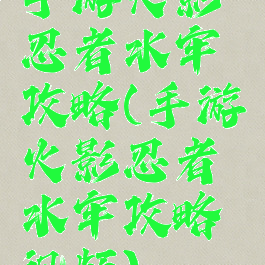 手游火影
忍者水牢
攻略(手游
火影忍者
水牢攻略
视频)